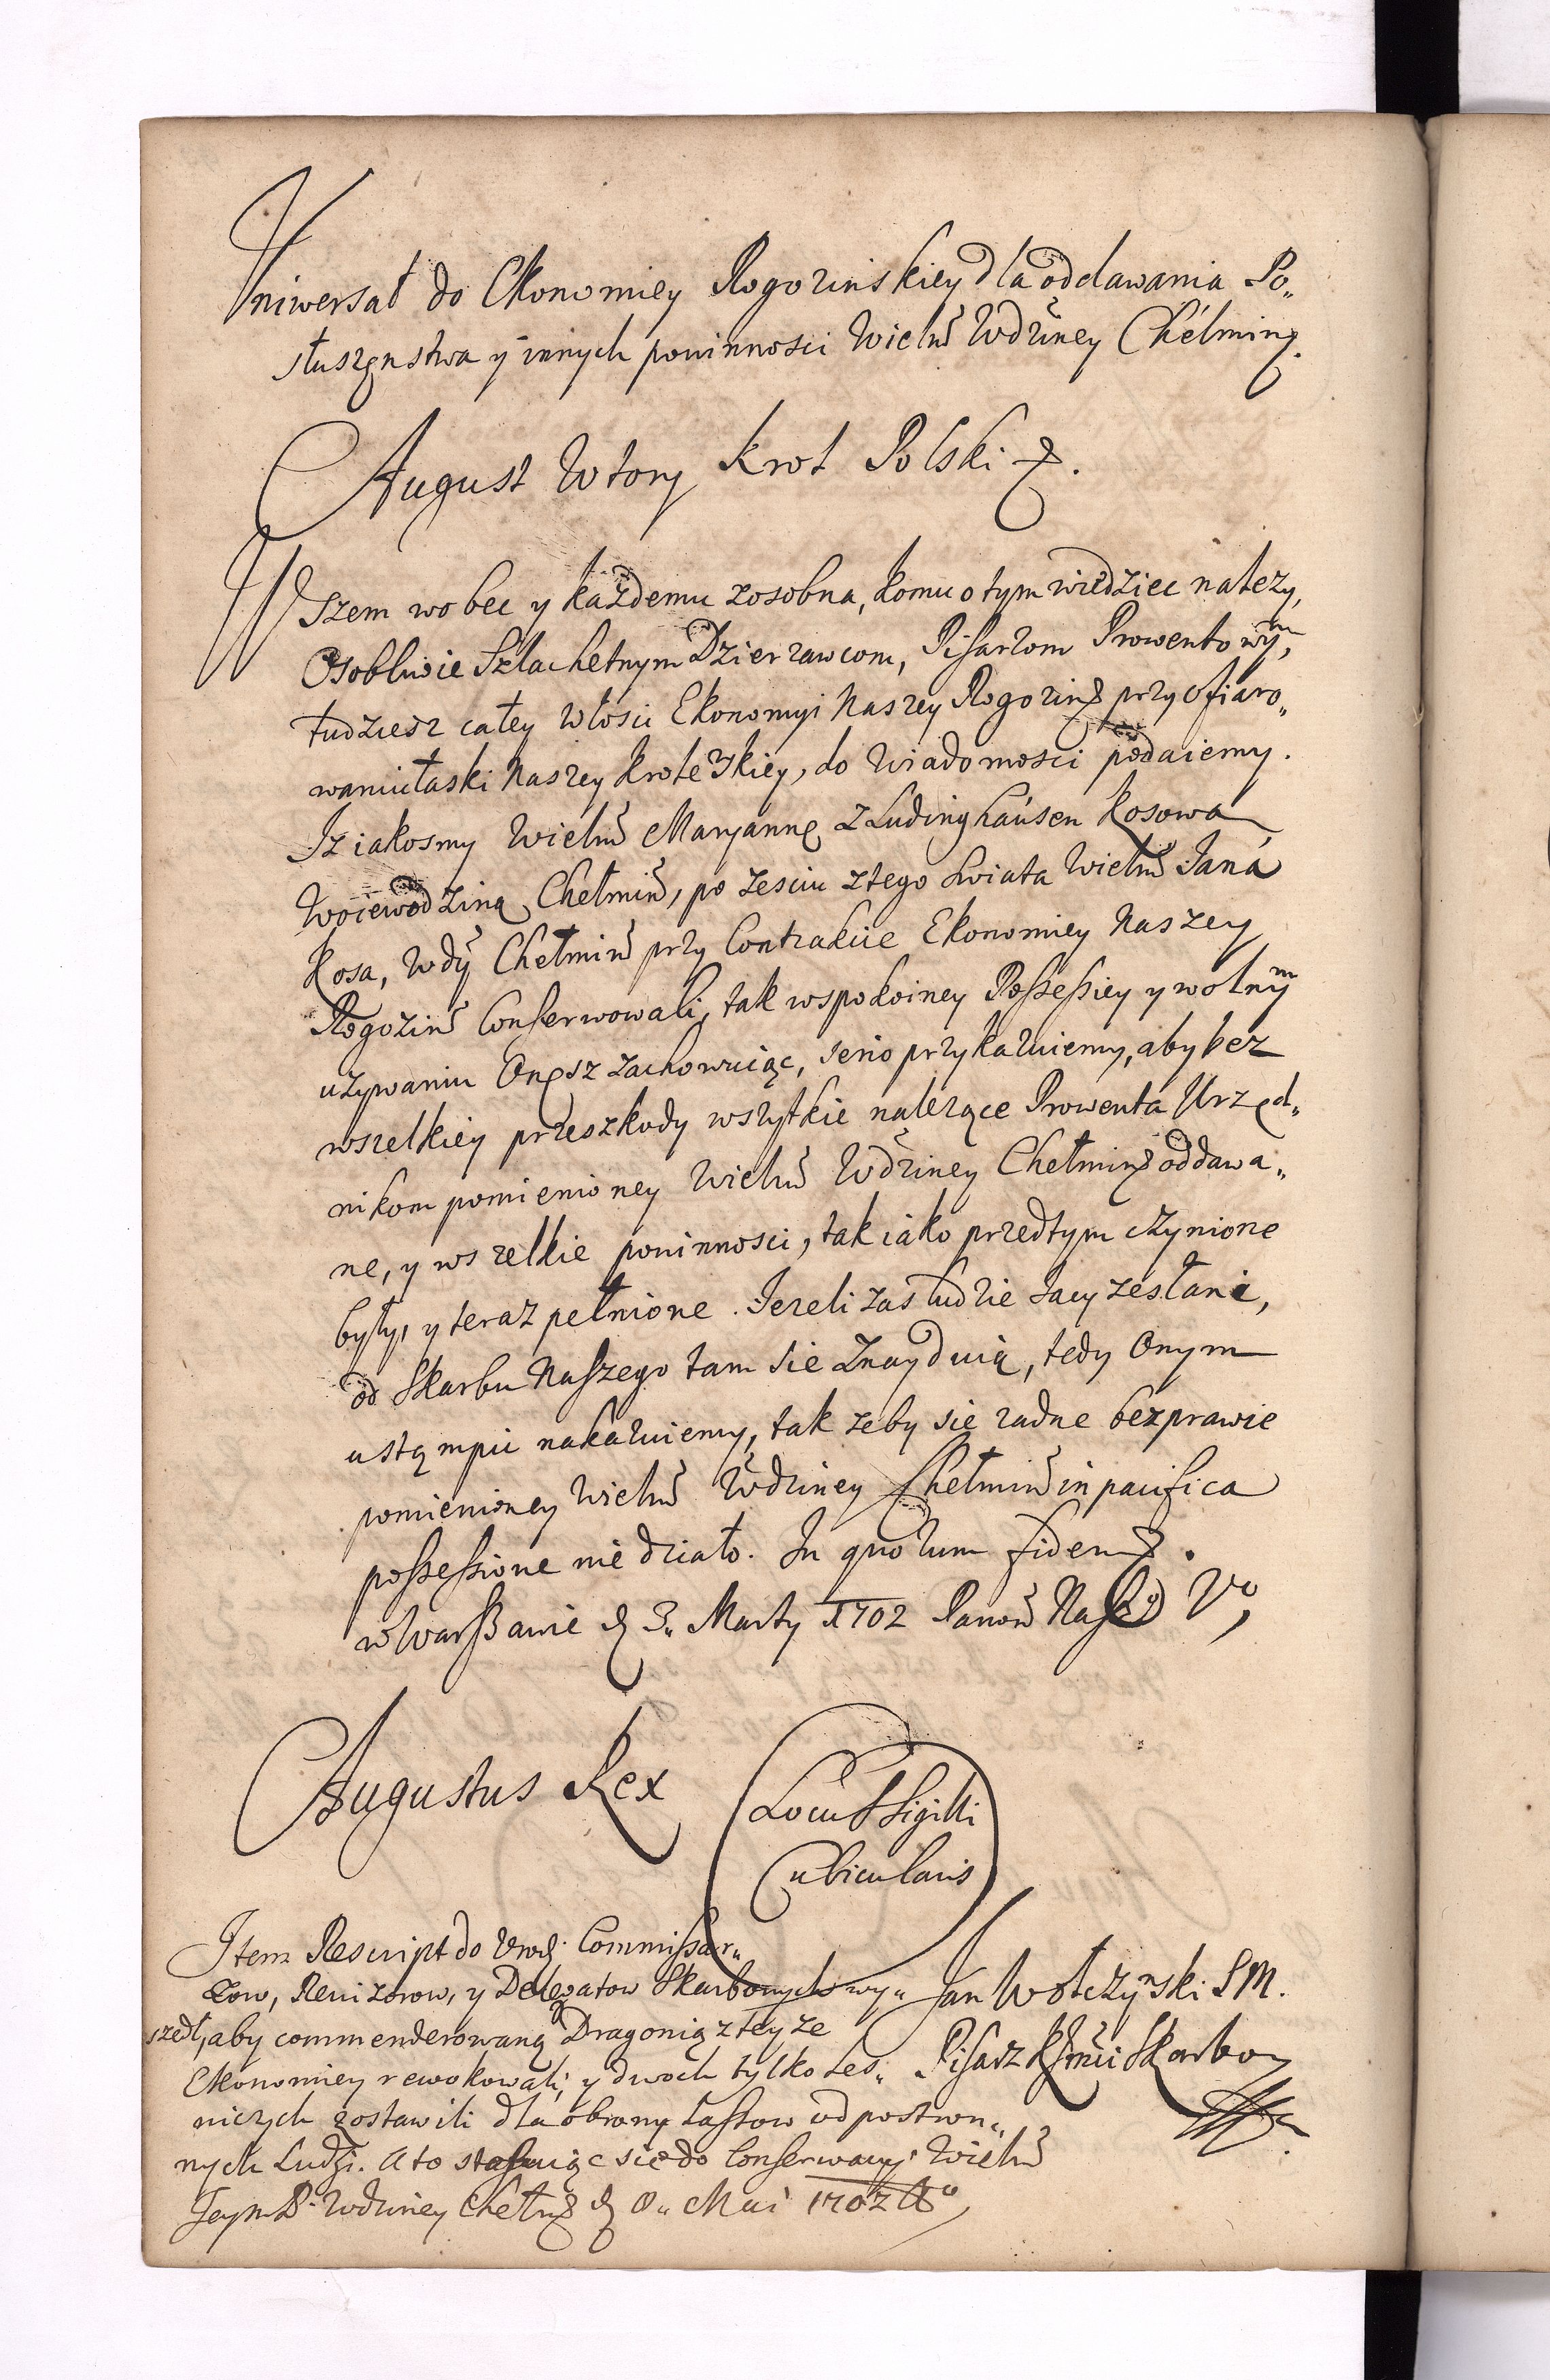 Uniwersał do Ekonomiey Rogozinskiey dla oddawania Po„
słuszęnstwa y innych powinnosci Wielm Wdziney Chełminȝ.
August Wtory Krol Polski ȝ.
Wszem wobec y każdemu zosobna, komu o tym wiedziec nalezy,
Osobliwie Szlachetnym Dzierzawcom, Pisarzom Prowentowym,
tudziesz całey włosci Ekonomyi Naszey Rogozinȝ przy ofiaro„
waniu łaski Naszey Krolewskiey, do Wiadomosci podaiemy.
Iz iakosmy Wielm Maryannę z Ludinghausen Kosowa
Woiewodziną Chełmin, po zesciu ztego swiata Wielm Jana
Kosa, Wdy Chełmin przy Contrakcie Ekonomiey Naszey
Rogozin Conserwowali, tak wspokoiney Possessiey y wolnym
uzywaniu Onęsz zachowuiąc, serio przykazuiemy, aby bez
wszelkiey przeszkody wszytkie nalezące Prowenta Urzęd„
nikom pomienioney Wielm Wdziney Chełminȝ oddawa„
ne, y wszelkie powinnosci, tak iako przedtym czynione
były, y teraz pełnione. Iezeli zas ludzie Jacy zesłani,
od Skarbu Naszego tam sie znayduią, tedy Onym
ustąmpic nakazuiemy, tak zeby się zadne bezprawie
pomienioney Wielm Wdziney Chełmin in pacifica
possessione nie działo. In quorum fidem ȝ.
w Warszawie d 3„ Marty 1702 Panow Naszeo Vo,
Augustus Rex
Locus Sigilli
Cubicularis
Item Rescript do Urodz. Commissar„
zow, Rewizorow, y Delegatow Skarbowych wy„
szedł, aby commenderowaną Dragonią z teyze
Ekonomiey rewokowali, y dwoch tylko Les„
niczych zostawili dla obrony Lassow od postron„
nych Ludzi. A to stosuiąc się do Conserwacyi Wielm
Jeym P. Wdziney Chełmȝ d 8„ Mai 1702 Ao
Jan Wołczynski S M.
Pisarz Skarbowy